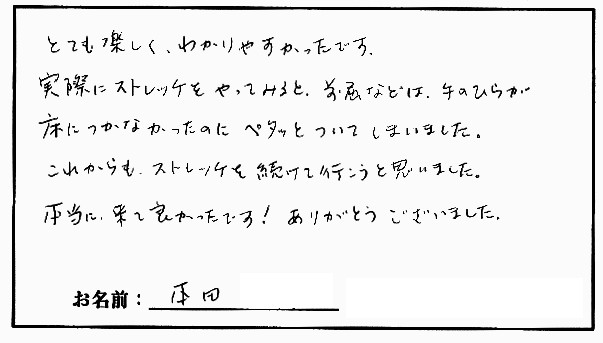 とても楽しく、わかりやすかったです。
実際にストレッチをやってみると、前屈などは、手のひらが
床につかなかったのにペタッとついてしまいました。
これからも、ストレッチを続けて行こうと思いました。
本当に、来て良かったです！ありがとうございました。
お名前：本田